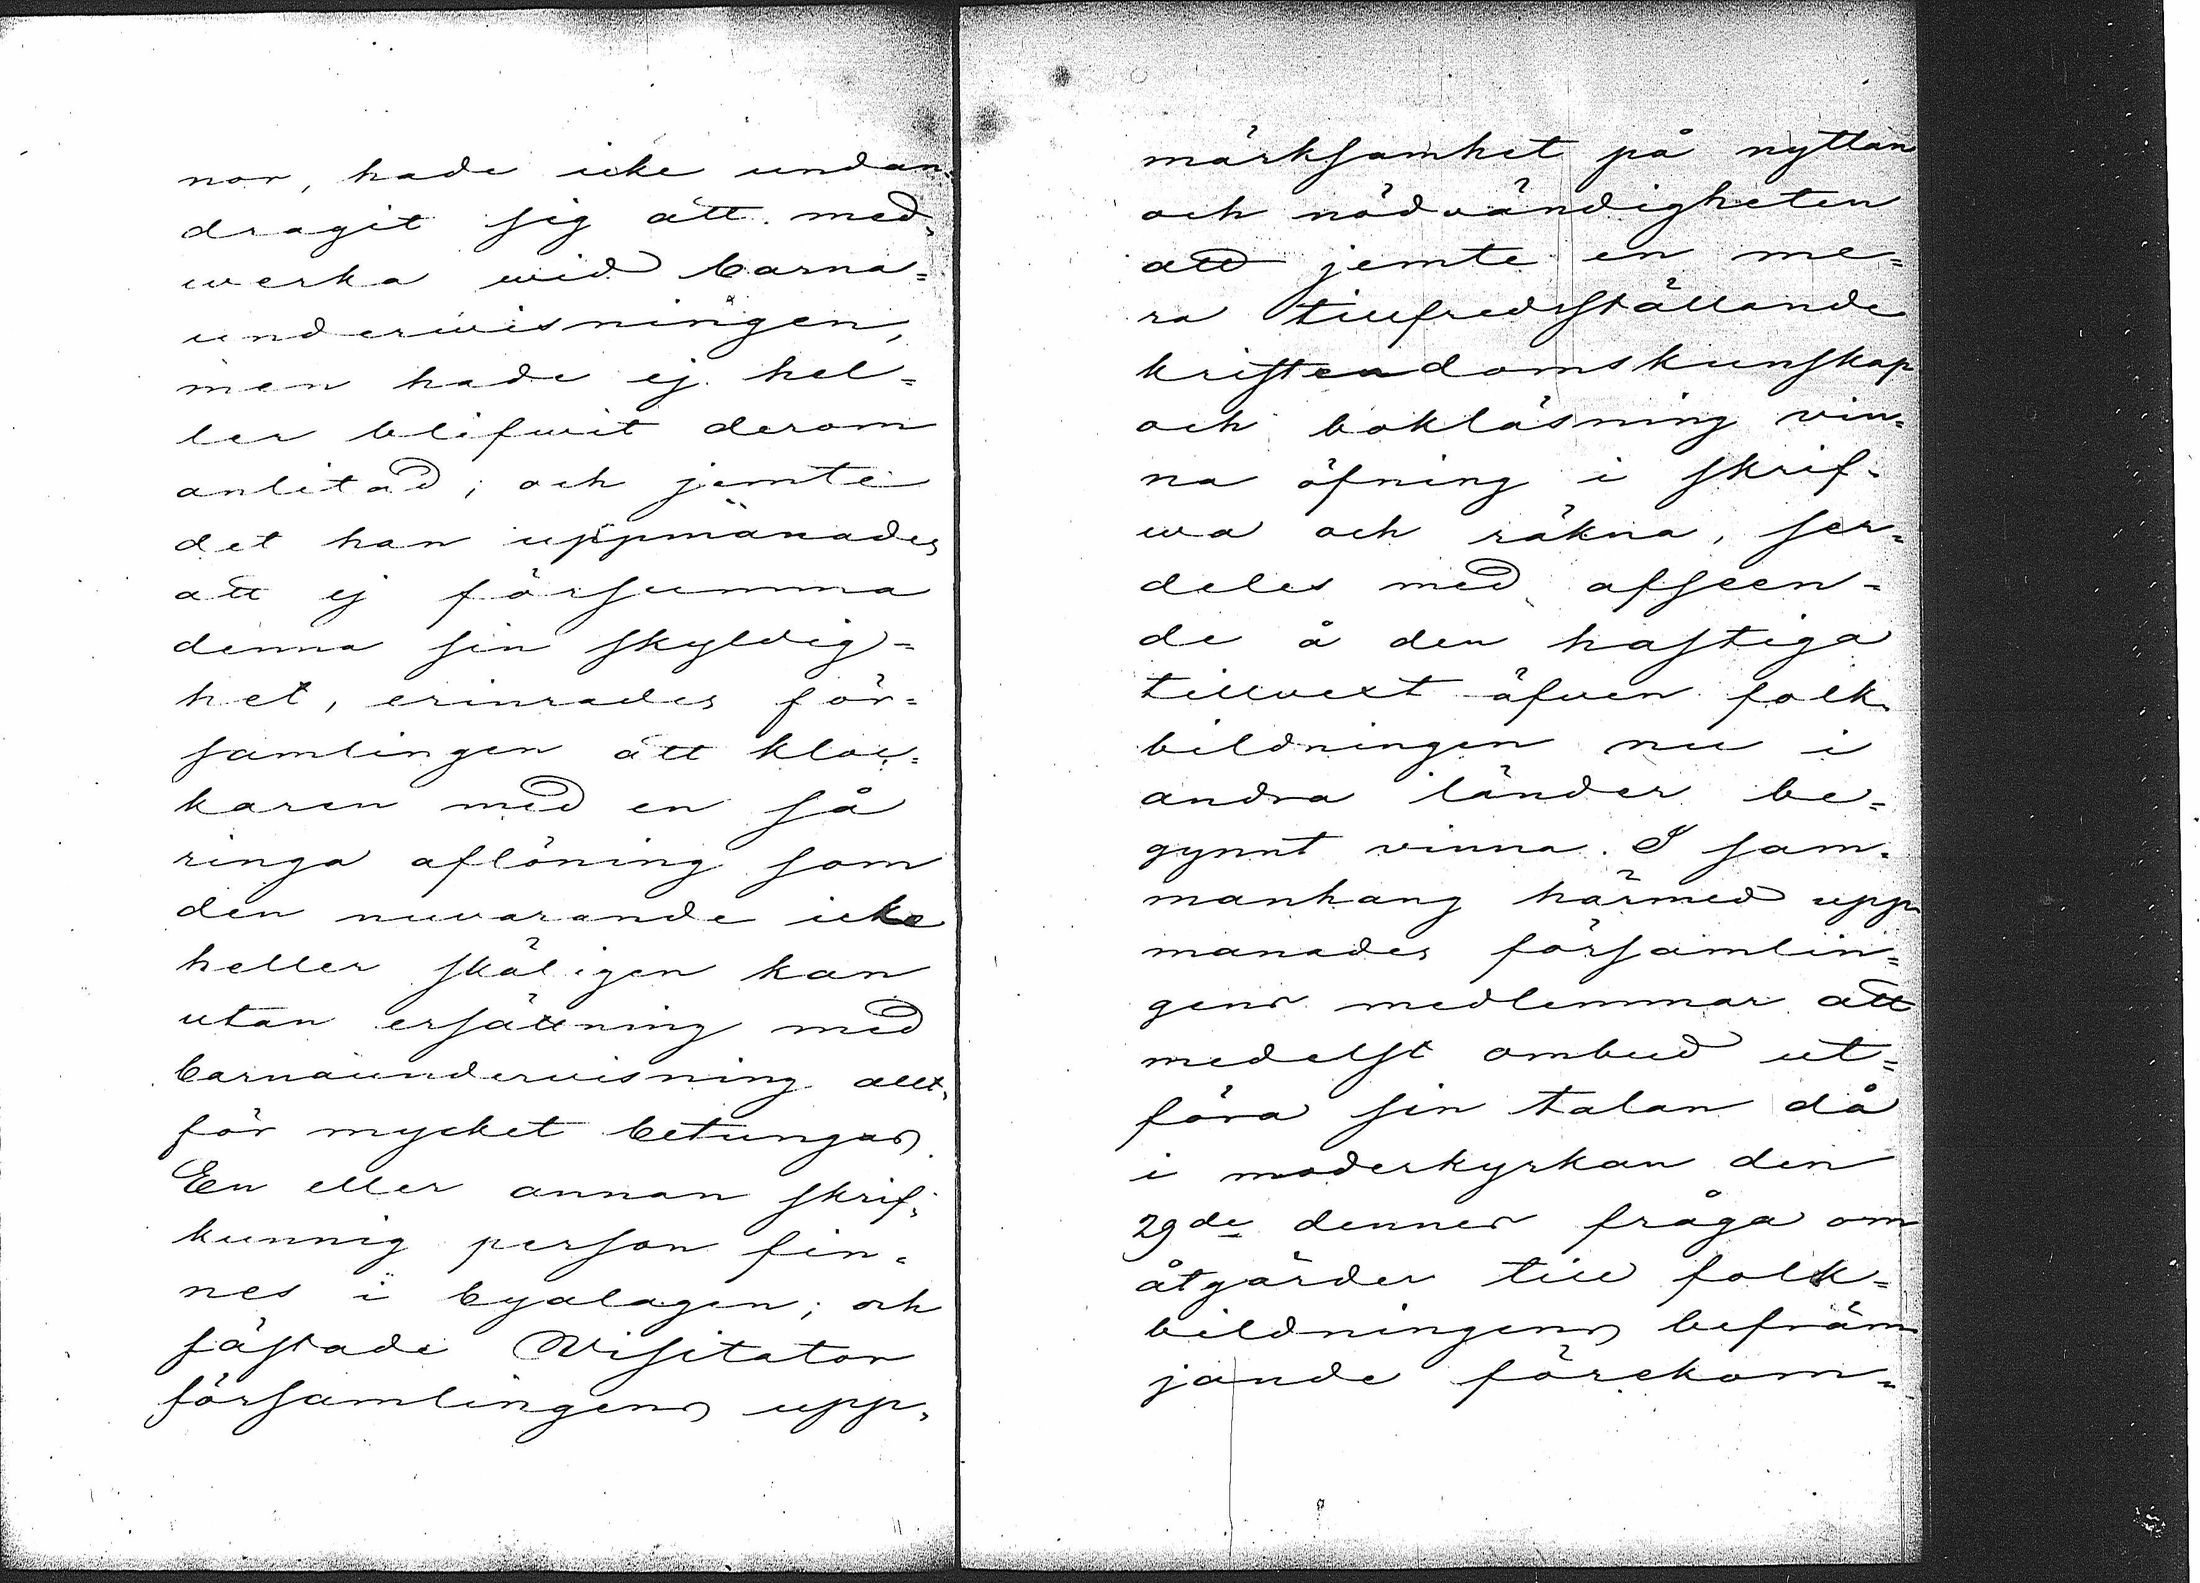 nor, hade icke undan=
dragit sig att med=
werka wid barna=
underwisningen,
men hade ej hel=
ler blifwit derom
anlitad; och jemte
det han uppmanades
att ej försumma
denna sin skyldig=
het, erinrades för=
samlingen att kloc=
karen med en så
ringa aflöning som
den nuvarande icke
heller skäligen kan
utan ersättning med
barnaundervisning allt=
för mycket betungas.
En eller annan skrif=
kunnig person fin=
nes i byalagen; och
fästade Wisitator
församlingens upp=
märksamhet på nyttan
och nödvändigheten
att jemte en me=
ra tillfredsställande
kristendomskunskap
och bokläsning vin=
na öfning i skrif=
wa och räkna, ser=
deles med afseen=
de å den hastiga
tillvext äfven folk
bildningen nu i
andra länder be=
gynnt vinna. I sam=
manhang härmed upp
manades församlin=
gens medlemmar att
medelst ombud ut=
föra sin talan då
i moderkyrkan den
29de dennes fråga om
åtgärder till folk=
bildningens befräm
jande förekom=